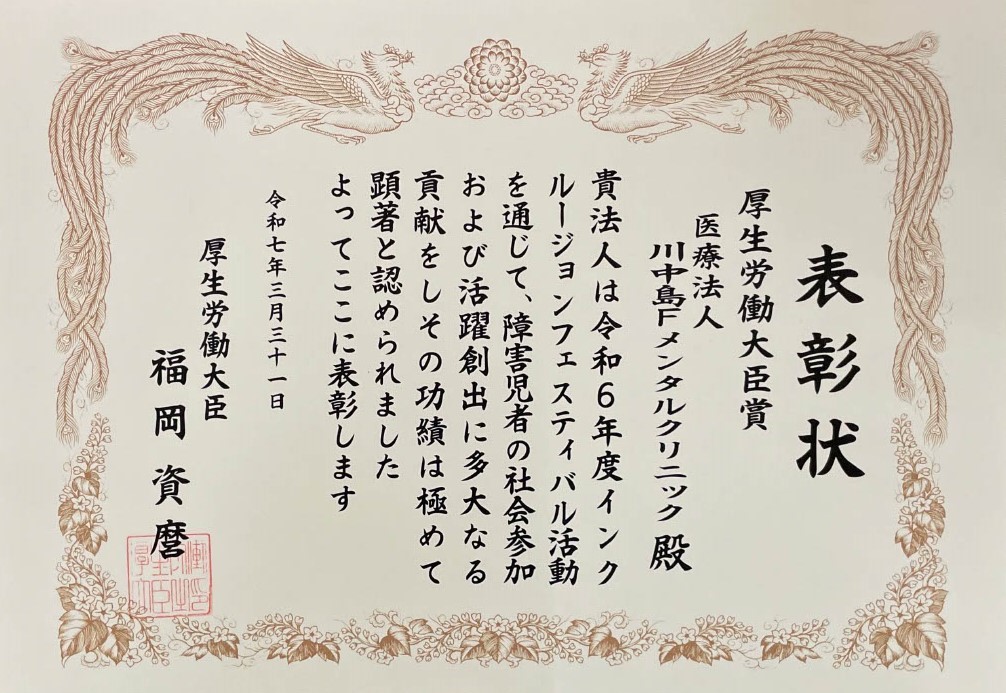 表彰状
厚生労働大臣賞
医療法人
川中島Fメンタルクリニック 殿
貴法人は令和6年度インク
ルージョンフェスティバル活動
を通じて、障害児者の社会参加
および活躍創出に多大なる
貢献をしその功績は極めて
顕著と認められました
よってここに表彰します
令和七年三月三十一日
厚生労働大臣
福岡資麿